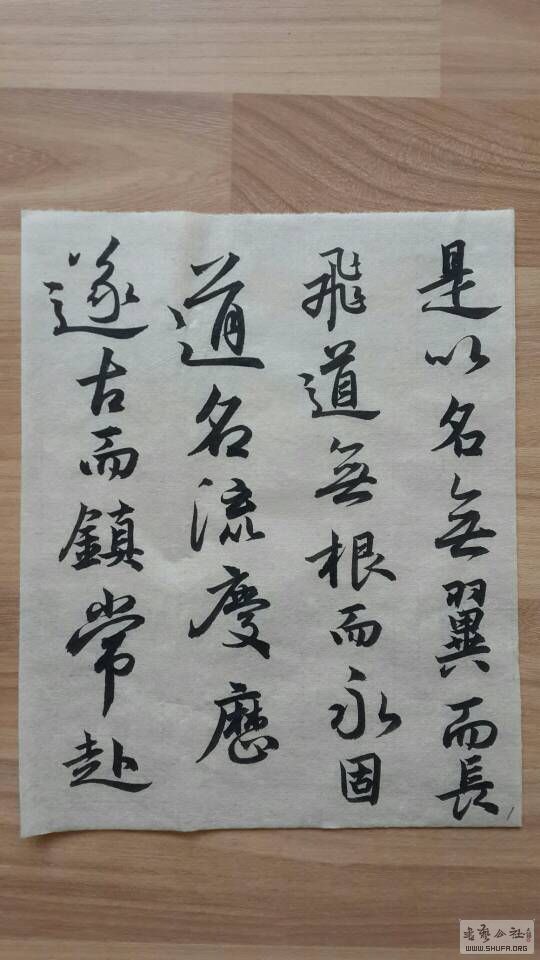 是以名無翼而長
飛道無根而永固
道名流慶歷
遂古而鎮常赴
书艺公社
WWW.SHUFA.ORG